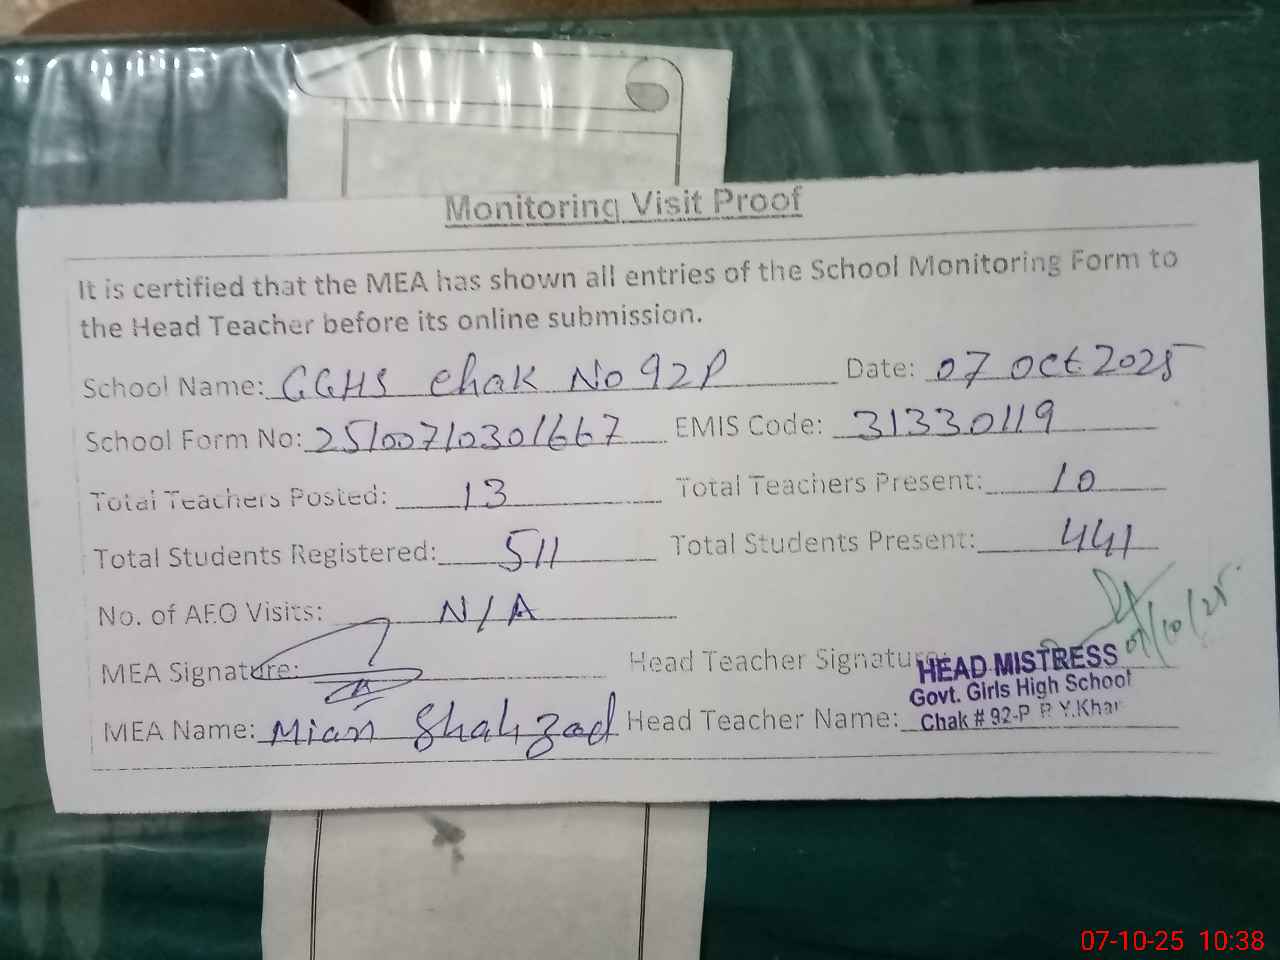 Monitoring Visit Proof
It is certified that the MEA has shown all entries of the School Monitoring Form to
the Head Teacher before its online submission.
School Name: GGHS Chak No 92P Date: 07 Oct 2025
School Form No: 25100710301667 EMIS Code: 31330119
Total Teachers Posted: 13 Total Teachers Present: 10
Total Students Registered: 511 Total Students Present: 441
No. of AEO Visits: N/A
07/10/25
MEA Signature: Head Teacher Signature:
HEAD MISTRESS
Govt. Girls High School
Chak # 92-P R.Y.Khan
MEA Name: Mian Shahzad Head Teacher Name:
07-10-25 10:38